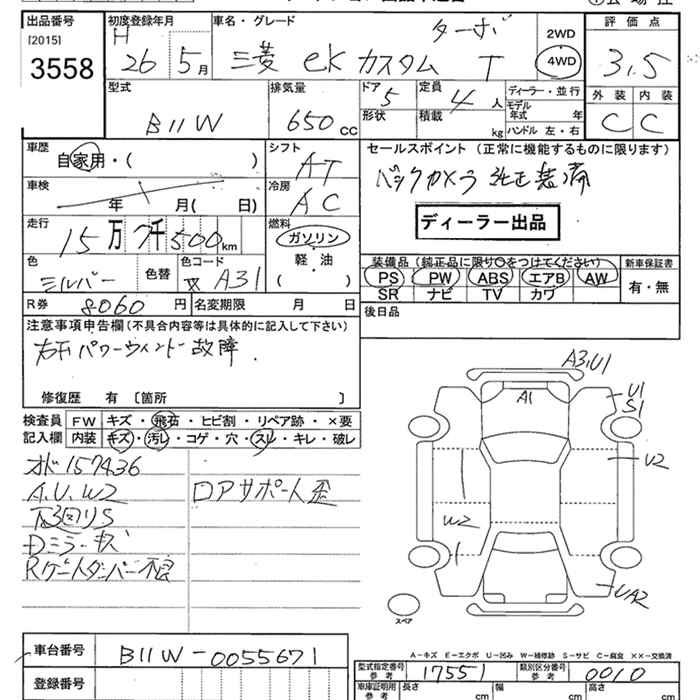 出品番号
[2015]
3558
初度登録年月
H 26 5月
車名・グレード
三菱 eK カスタム ターボ T
2WD
4WD
評価点
3.5
外装 内装
C C
型式
B11W
排気量
650 CC
ドア
5
形状
定員
4 人
積載
kg
ディーラー・並行
モデル年式 年
ハンドル 左・右
車歴
自家用・( )
車検
年 月( 日)
走行
15万7千500km
シフト
AT
冷房
AC
燃料
ガソリン
軽・油
( )
色
シルバー
色替
色コード
A31
R券 8060 円
名変期限 月 日
セールスポイント (正常に機能するものに限ります)
バックカメラ 純正装備
ディーラー出品
装備品(純正品に限り○をつけてください)
PS PW ABS エアB AW
SR ナビ TV カワ
新車保証書
有・無
後日品
注意事項申告欄(不具合内容等は具体的に記入して下さい)
パワーウィンドー故障.
修復歴 有 〔箇所 〕
検査員記入欄
FW キズ・飛石・ヒビ割・リペア跡・×要
内装 キズ・汚レ・コゲ・穴・スレ・キレ・破レ
オド157436
A.U.W2
下回りS
Dミラーキズ
Rゲートダンパー不良
コアサポート歪
A3,U1
A1
U1
S1
U2
W2
UA2
スペア
A-キズ E-エクボ U-凹み W-補修跡 S-サビ C-腐食 ××-交換済
車台番号 B11W-0055671
登録番号
型式指定番号 参考 17551
類別区分番号 参考 0010
車庫証明用 参考 長さ cm 幅 cm 高さ cm